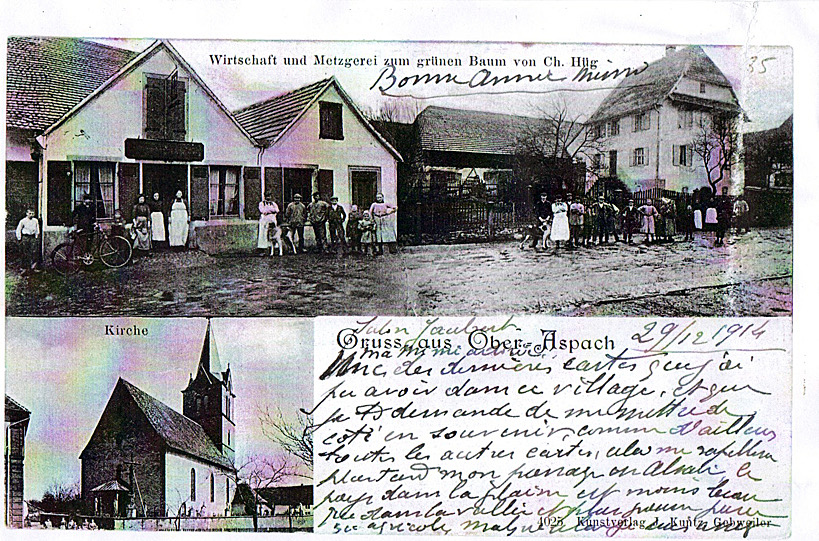 Wirtschaft und Metzgerei zum grünen Baum von Ch. Hüg
35
Bonne Année Mimi
Kirche
Gruss aus Ober-Aspach
29/12 1914
ma mimi
Une des dernières cartes que j'ai
pu avoir dans ce village, et que
je te demande de me mettre de
coté en souvenir, comme d'ailleurs
toutes les autres cartes, cela me rapellera
plus tard mon passage en Alsace le
pays dans la plaine est moins beau
que dans la vallée et plus
agricole, malgré
4025 Kunstverlag J. Kuntz, Gebweiler